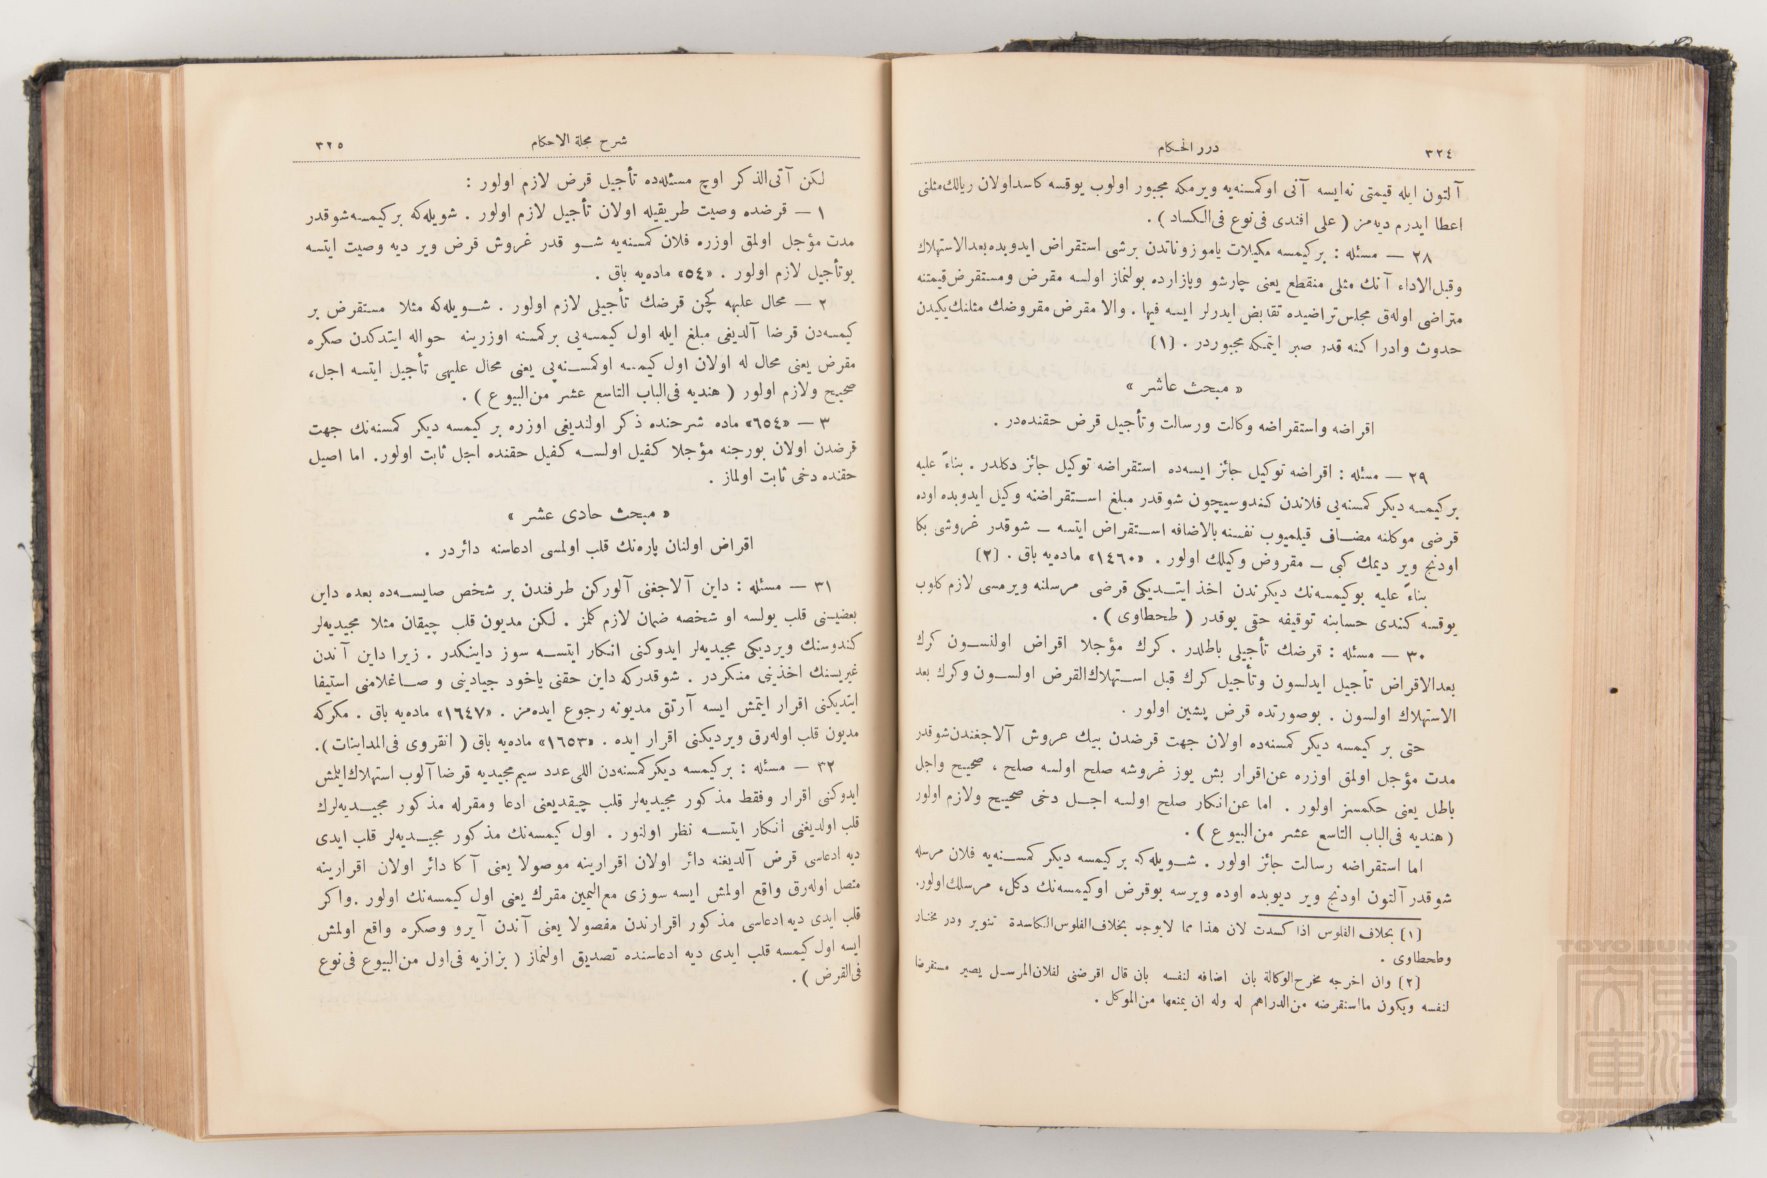 ٣٢٤
درر الحكام
آلتون ايله قيمتى نه‌ايسه آنى اوكمسنه‌يه ويرمكه مجبور اولوب يوقسه كاسداولان ريالك‌مثلنى
اعطا ايدرم ديه‌مز ( على افندى فى‌نوع فى‌الكساد ) .
٢٨ — مسئله : بركيمسه مكيلات ياموزوناتدن برشى استقراض ايدوبده‌بعدالاستهلاك
وقبل‌الاداء آنك مثلى منقطع يعنى چارشو وپازارده بولنماز اولسه مقرض ومستقرض‌قيمتنه
متراضى اوله‌ق مجلس‌تراضيده تقابض ايدرلر ايسه فبها . والا مقرض مقروضك مثلنك‌يكيدن
حدوث وادراكنه قدر صبر ايتمكه مجبوردر . (١)
« مبحث عاشر »
اقراضه واستقراضه وكالت ورسالت وتأجيل قرض حقنده‌در .
٢٩ — مسئله : اقراضه توكيل جائز ايسه‌ده استقراضه توكيل جائز دكلدر . بناءً عليه
بركيمسه ديكر كمسنه‌يى فلاندن كندوسيچون شوقدر مبلغ استقراضنه وكيل ايدوبده اوده
قرضى موكلنه مضاف قيلميوب نفسنه بالاضافه استقراض ايتسه — شوقدر غروشى بكا
اودنج وير ديمك كبى — مقروض وكيلك اولور . «١٤٦٠» ماده‌يه باق . (٢)
بناءً عليه بوكيمسه‌نك ديكرندن اخذ ايتديكى قرضى مرسلنه ويرمسى لازم كلوب
يوقسه كندى حسابنه توقيفه حقى يوقدر ( طحطاوى ) .
٣٠ — مسئله : قرضك تأجيلى باطلدر . كرك مؤجلا اقراض اولنسون كرك
بعدالاقراض تأجيل ايدلسون وتأجيل كرك قبل استهلاك‌القرض اولسون وكرك بعد
الاستهلاك اولسون . بوصورتده قرض پشين اولور .
حتى بر كيمسه ديكر كمسنه‌ده اولان جهت قرضدن بيك غروش آلاجغندن‌شوقدر
مدت مؤجل اولمق اوزره عن‌اقرار بش يوز غروشه صلح اولسه صلح ، صحيح واجل
باطل يعنى حكمسز اولور . اما عن‌انكار صلح اولسه اجل دخى صحيح ولازم اولور
( هنديه فى‌الباب التاسع عشر من‌البيوع ) .
اما استقراضه رسالت جائز اولور . شويله‌كه بركيمسه ديكر كمسنه‌يه فلان مرسله
شوقدر آلتون اودنج وير ديوبده اوده ويرسه بوقرض اوكيمسه‌نك دكل، مرسلك‌اولور.
(١) بخلاف الفلوس اذا كسدت لان هذا مما لايوجد بخلاف‌الفلوس‌الكاسدة تنوير ودر مختار
وطحطاوى .
(٢) وان اخرجه مخرج‌الوكالة بان اضافه لنفسه بان قال اقرضنى لفلان‌المرسل يصير مستقرضا
لنفسه ويكون مااستقرضه من‌الدراهم له وله ان يمنعها من‌الموكل .
شرح مجلة الاحكام
٣٢٥
لكن آتى‌الذكر اوچ مسئله‌ده تأجيل قرض لازم اولور :
١ — قرضده وصيت طريقيله اولان تأجيل لازم اولور . شويله‌كه بركيمسه‌شوقدر
مدت مؤجل اولمق اوزره فلان كمسنه‌يه شو قدر غروش قرض وير ديه وصيت ايتسه
بوتأجيل لازم اولور . «٥٤» ماده‌يه باق .
٢ — محال عليهه كچن قرضك تأجيلى لازم اولور . شويله‌كه مثلا مستقرض بر
كيمسه‌دن قرضا آلديغى مبلغ ايله اول كيمسه‌يى بركمسنه اوزرينه حواله ايتدكدن صكره
مقرض يعنى محال له اولان اول كيمسه اوكمسنه‌يى يعنى محال عليهى تأجيل ايتسه اجل،
صحيح ولازم اولور ( هنديه فى‌الباب التاسع عشر من‌البيوع ) .
٣ — «٦٥٤» ماده شرحنده ذكر اولنديغى اوزره بر كيمسه ديكر كمسنه‌نك جهت
قرضدن اولان بورجنه مؤجلا كفيل اولسه كفيل حقنده اجل ثابت اولور. اما اصيل
حقنده دخى ثابت اولماز .
« مبحث حادى عشر »
اقراض اولنان پاره‌نك قلب اولمسى ادعاسنه دائردر .
٣١ — مسئله : داين آلاجغنى آلوركن طرفندن بر شخص صايسه‌ده بعده داين
بعضيسنى قلب بولسه او شخصه ضمان لازم كلمز . لكن مديون قلب چيقان مثلا مجيديه‌لر
كندوسنك ويرديكى مجيديه‌لر ايدوكنى انكار ايتسه سوز داينكدر . زيرا داين آندن
غيريسنك اخذينى منكردر . شوقدركه داين حقنى ياخود جيادينى و صاغلامنى استيفا
ايتديكنى اقرار ايتمش ايسه آرتق مديونه رجوع ايده‌مز . «١٦٤٧» ماده‌يه باق . مكركه
مديون قلب اوله‌رق ويرديكنى اقرار ايده . «١٦٥٣» ماده‌يه باق ( انقروى فى‌المداينات ).
٣٢ — مسئله : بركيمسه ديكركمسنه‌دن اللى عدد سيم‌مجيديه قرضا آلوب استهلاك‌ايلمش
ايدوكنى اقرار وفقط مذكور مجيديه‌لر قلب چيقديغنى ادعا ومقرله مذكور مجيديه‌لرك
قلب اولديغنى انكار ايتسه نظر اولنور . اول كيمسه‌نك مذكور مجيديه‌لر قلب ايدى
ديه ادعاسى قرض آلديغنه دائر اولان اقرارينه موصولا يعنى آكا دائر اولان اقرارينه
متصل اوله‌رق واقع اولمش ايسه سوزى مع‌اليمين مقرك يعنى اول كيمسه‌نك اولور .واكر
قلب ايدى ديه ادعاسى مذكور اقرارندن مفصولا يعنى آندن آيرو وصكره واقع اولمش
ايسه اول كيمسه قلب ايدى ديه ادعاسنده تصديق اولنماز ( بزازيه فى‌اول من‌البيوع فى‌نوع
فى‌القرض ) .
TOYO BUNKO